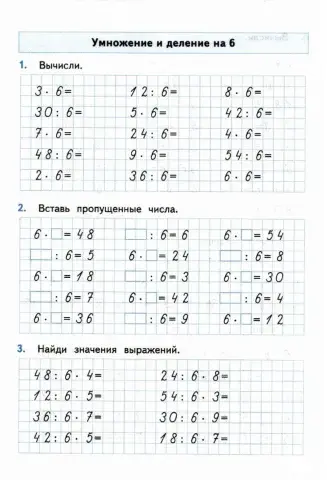 Умножение и деление на 6
1. Вычисли.
3 · 6 = 12 : 6 = 8 · 6 =
30 : 6 = 5 · 6 = 42 : 6 =
7 · 6 = 24 : 6 = 4 · 6 =
48 : 6 = 9 · 6 = 54 : 6 =
2 · 6 = 36 : 6 = 6 · 6 =
2. Вставь пропущенные числа.
6 · □ = 48 □ : 6 = 6 6 · □ = 54
□ : 6 = 5 6 · □ = 24 □ : 6 = 8
6 · □ = 18 □ : 6 = 3 6 · □ = 30
□ : 6 = 7 6 · □ = 42 □ : 6 = 4
6 · □ = 36 □ : 6 = 9 6 · □ = 12
3. Найди значения выражений.
48 : 6 · 4 = 24 : 6 · 8 =
12 : 6 · 5 = 54 : 6 · 3 =
36 : 6 · 7 = 30 : 6 · 9 =
42 : 6 · 5 = 18 : 6 · 7 =